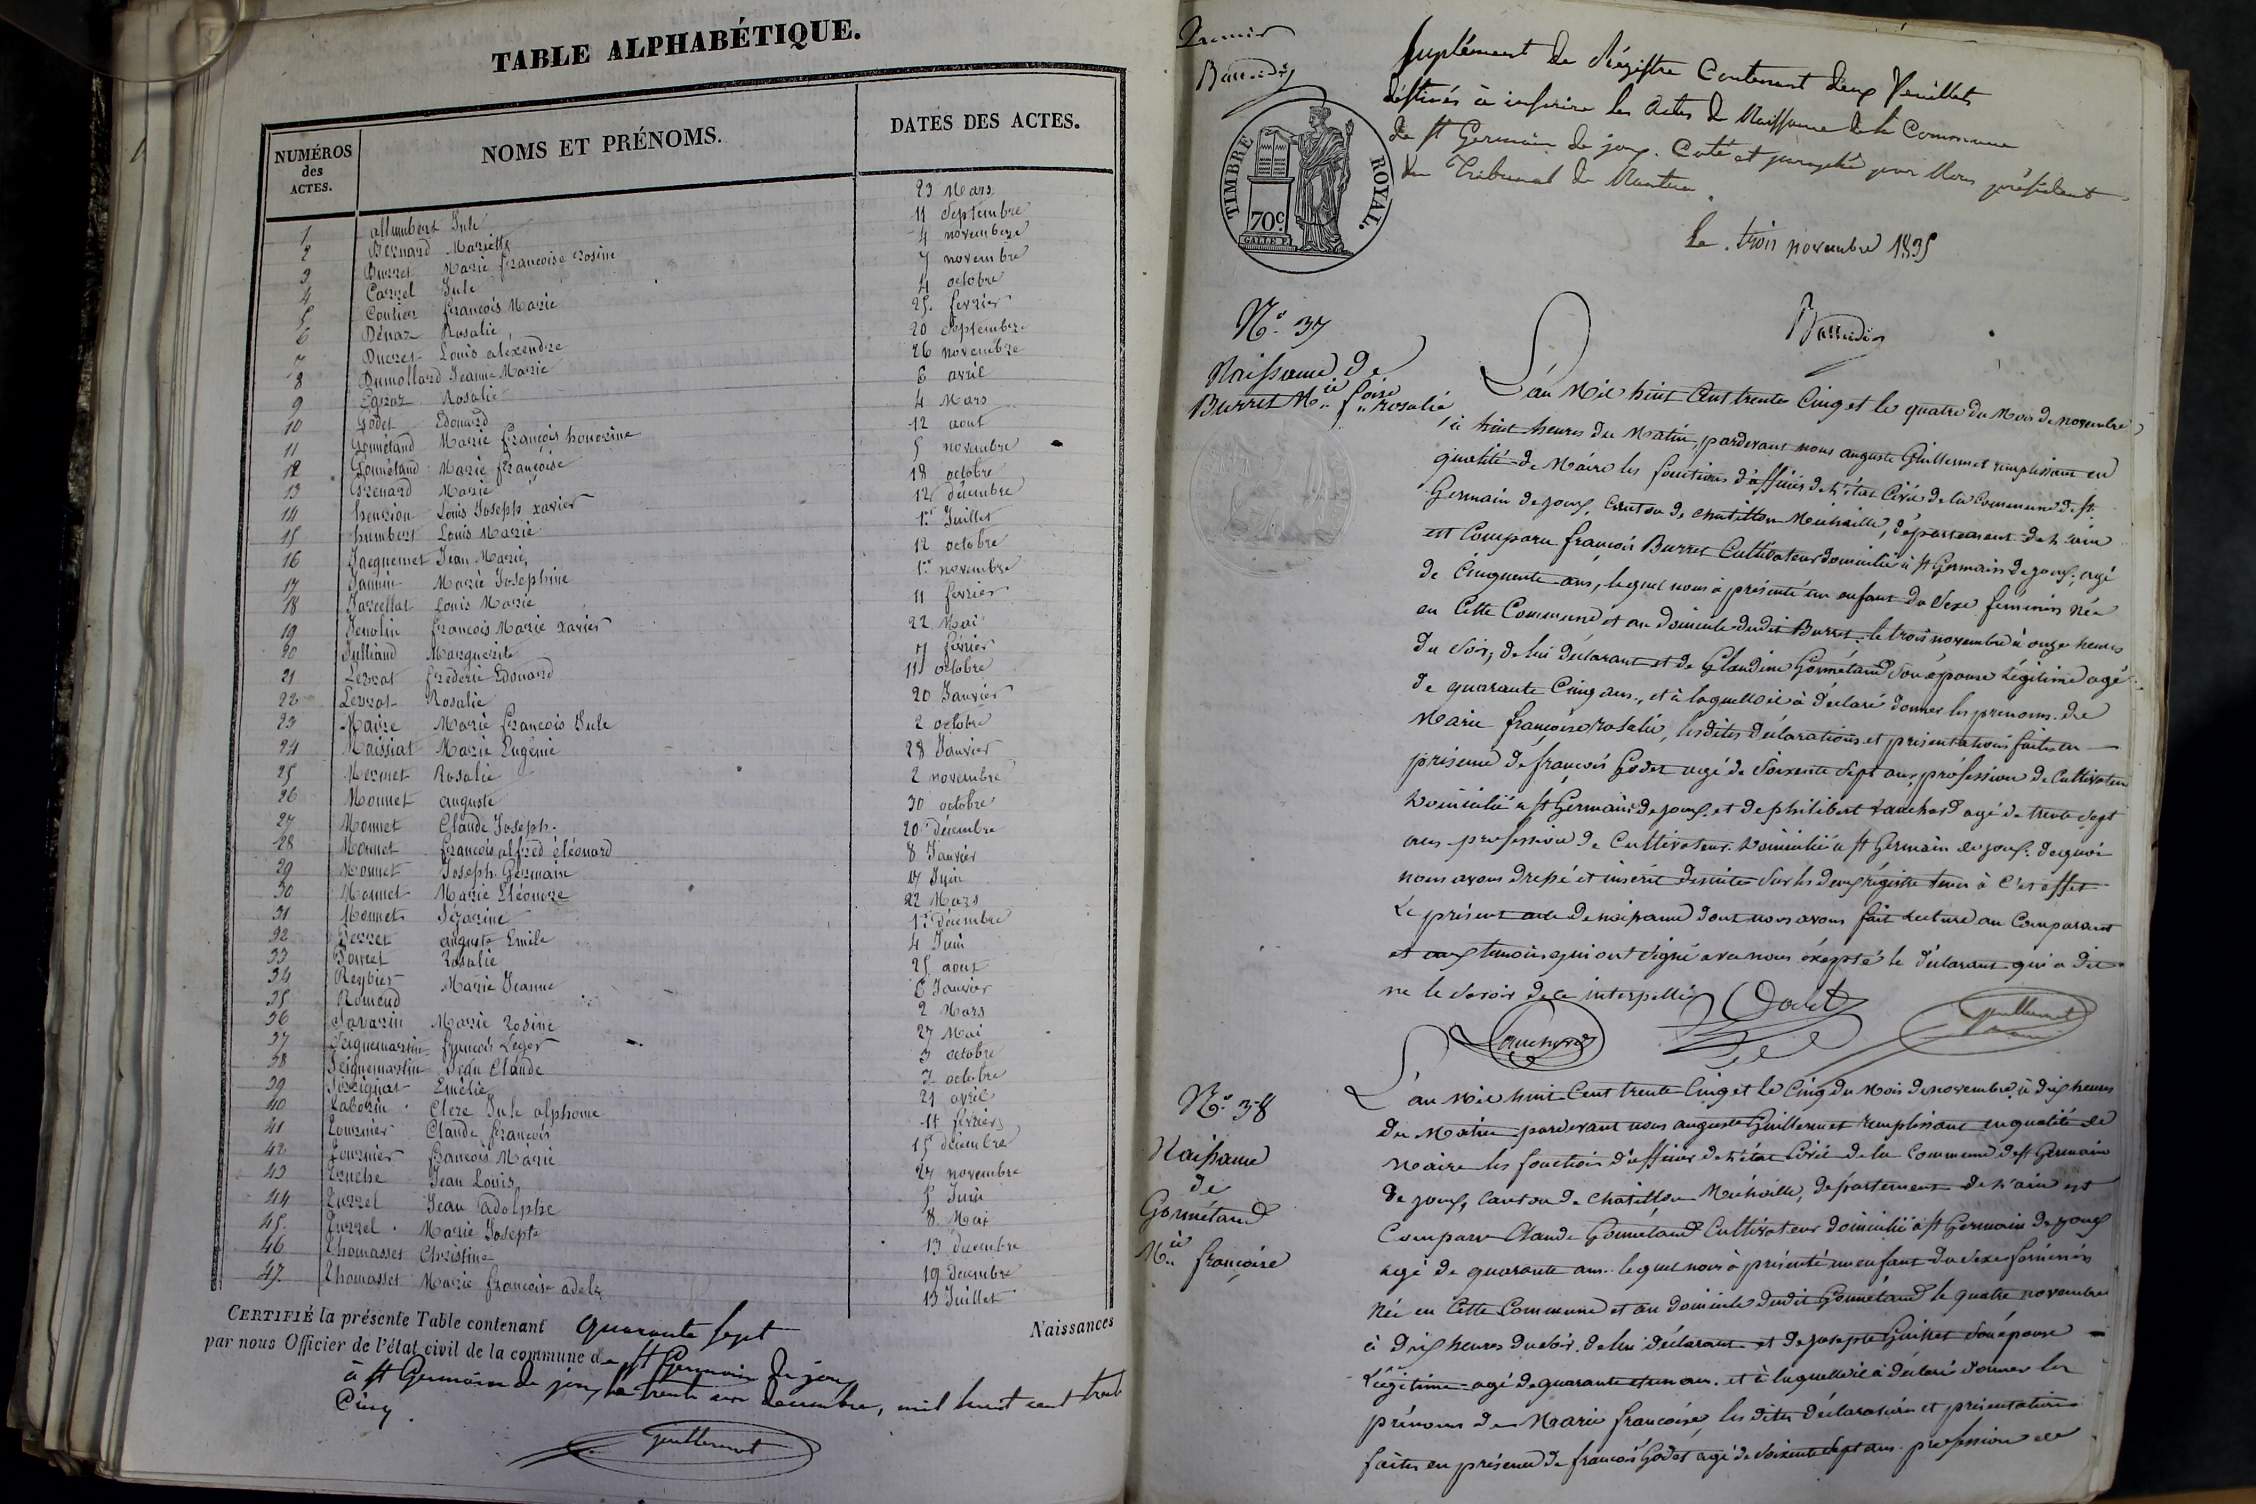 TABLE ALPHABÉTIQUE.
NUMÉROS des ACTES. NOMS ET PRÉNOMS. DATES DES ACTES.
1 allumbert Jule 23 Mars
2 Bernard Mariette 11 Septembre
3 Burret Marie francoise rosine 4 novembre
4 Carrel Jule 7 novembre
5 Coutier françois Marie 4 octobre
6 Dénaz Rosalie 25 fevrier
7 Ducret Louis aléxendre 20 Septembre
8 Dumollard Jeanne Marie 26 novembre
9 Egraz Rosalie 6 avril
10 Godet Edouard 4 Mars
11 Gonnétand Marie françois honorine 12 aout
12 Gonnétand Marie françoise 5 novembre
13 Grenard Marie 18 octobre
14 henriou Louis Joseph xavier 12 décembre
15 humbert Louis Marie 1er Juillet
16 Jacquemet Jean Marie 12 octobre
17 Jannin Marie Josephine 1er novembre
18 Jarcellat Louis Marie 11 fevrier
19 Jenolin françois Marie xavier 22 Mai
20 Julliand Marguerite 7 février
21 Levrat frédéric Edouard 11 octobre
22 Levrat Rosalie 20 Janvier
23 Maire Marie françois Jule 2 octobre
24 Maissiat Marie Eugénie 28 Janvier
25 Mermet Rosalie 2 novembre
26 Monnet auguste 30 octobre
27 Monnet Claude Joseph 20 décembre
28 Monnet françois alfred éléonard 8 Janvier
29 Monnet Joseph Germain 17 Juin
30 Monnet Marie Eléonore 22 Mars
31 Monnet Sézarine 1er décembre
32 Perret auguste Emile 4 Juin
33 Poncet Rosalie 25 aout
34 Reybier Marie Jeanne 6 Janvier
35 Romend 2 Mars
36 Savarin Marie rosine 27 Mai
37 Seignemartin françois Léger 3 octobre
38 Seignemartin Jean Claude 7 octobre
39 Emélie 21 avril
40 Taborin Clere Jule alphonse 11 fevrier
41 Tournier Claude françois 15 décembre
42 Tournier françois Marie 27 novembre
43 Truche Jean Louis 5 Juin
44 Turrel Jean adolphe 8 Mai
45 Turrel Marie Josepte 13 décembre
46 Thomasset Christine 19 décembre
47 Thomasset Marie françoise adele 13 Juillet
CERTIFIÉ la présente Table contenant quarante sept Naissances
par nous Officier de l'état civil de la commune de St Germain de joux
à St Germain de joux le trente un decembre, mil huit cent trente
Cinq.
Guillermet
Premier
Suplément de Régistre Contenant deux feuillets
déstinés à inscrire les actes de Naissance de la Commune
de St Germain de joux. Coté et paraphé par Nous président
du Tribunal de Nantua
le trois novembre 1835
TIMBRE ROYAL.
70c.
N° 37
Naissance de
Burret Mie foise rosalie
L'an Mil huit Cent trente Cinq et le quatre du Mois de novembre
à huit heures du Matin, pardevant nous auguste Guillermet remplissant en
qualité de Maire les fonctions d'officier de l'état Civil de la Commune de St
Germain de joux, Canton de Chatillon Michaille, département de l'ain
est Comparu françois Burret Cultivateur domicilié à St Germain de joux, agé
de Cinquante ans, lequel nous à présenté un enfant du Sexe feminin née
en Cette Commune et au domicile dudit Burret, le trois novembre à onze heures
du soir, de lui déclarant et de Claudine Gonnétand Son épouse Légitime agé
de quarante Cinq ans, et à laquelle il à déclaré donner les prenoms de
Marie françoise rosalie, lesdites déclarations et présentations faites en
présence de françois Godet agé de Soixente Sept ans, profession de Cultivateur
domicilié à St Germain de joux, et de philibert agé de trente Sept
ans profession de Cultivateur domicilié à St Germain de joux. dequoi
nous avons dressé et inscrit desuite Sur les deux régistre tenu à Cet effet
Le présent acte de naissance dont nous avons fait Lecture au Comparant
et aux temoins qui ont Signé avec nous éxcepté le déclarant qui a dit
ne le Savoir de ce interpellé
Godet
Guillermet
maire
N° 38
Naissance
de
Gonnétand
Mie françoise
L'an Mil huit Cent trente Cinq et le Cinq du Mois de novembre à dix heures
du Matin pardevant nous auguste Guillermet remplissant en qualité de
Maire les fonctions d'officier de l'état Civil de la Commune de St Germain
de joux, Canton de Chatillon Michaille, département de l'ain est
Comparu Claude Gonnétand Cultivateur domicilié à St Germain de joux
agé de quarante ans lequel nous à présenté un enfant du Sexe féminin
Née en Cette Commune et au domicile dudit Gonnétand le quatre novembre
à dix heures du soir, de lui déclarant et de josepte Guillet Son épouse
Légitime agé de quarante et un ans, et à laquelle il à déclaré donner les
prénoms de Marie françoise, les dites déclaration et présentation
faites en présence de françois Godet agé de Soixente Sept ans profession de